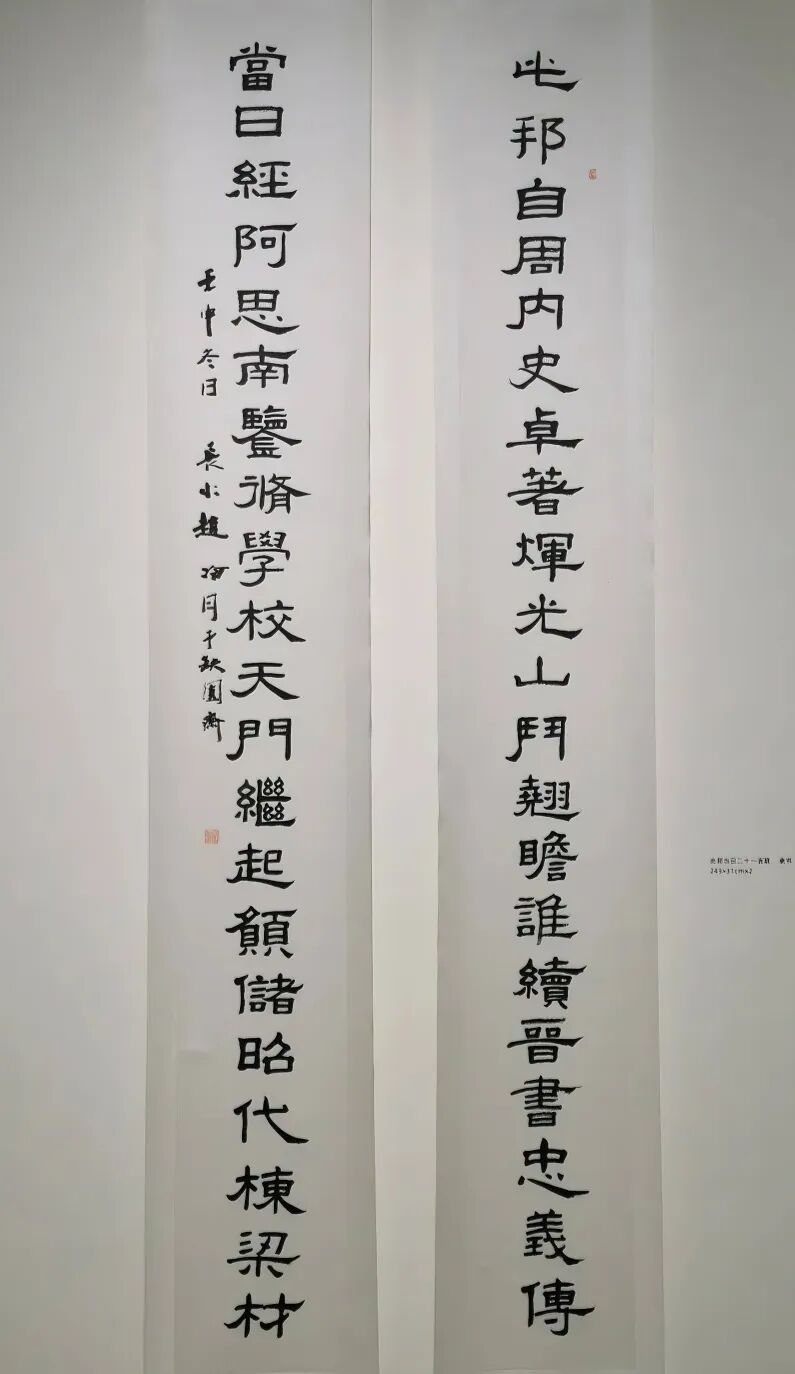 此邦自周内史卓著煇光山鬥翹瞻誰續晉書忠義傳
當日經阿思南鑒脩學校天門繼起願儲昭代棟梁材
壬申冬日 長水趙 冷月于缺圓齋
243×31cm×2